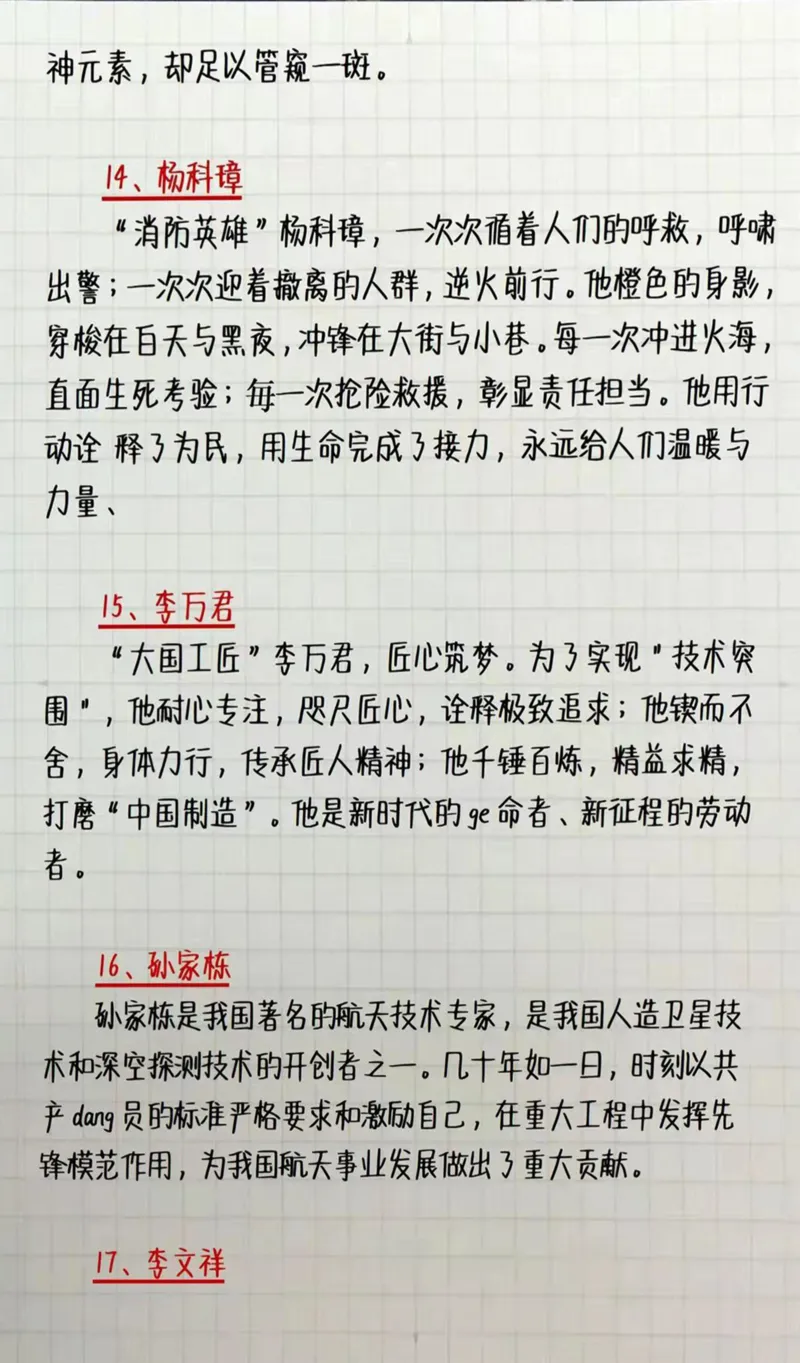 神元素，却足以管窥一斑。
14、杨科璋
“消防英雄”杨科璋，一次次循着人们的呼救，呼啸
出警；一次次迎着撤离的人群，逆火前行。他橙色的身影，
穿梭在白天与黑夜，冲锋在大街与小巷。每一次冲进火海，
直面生死考验；每一次抢险救援，彰显责任担当。他用行
动诠 释了为民，用生命完成了接力，永远给人们温暖与
力量、
15、李万君
“大国工匠”李万君，匠心筑梦。为了实现"技术突
围"，他耐心专注，咫尺匠心，诠释极致追求；他锲而不
舍，身体力行，传承匠人精神；他千锤百炼，精益求精，
打磨“中国制造”。他是新时代的ge命者、新征程的劳动
者。
16、孙家栋
孙家栋是我国著名的航天技术专家，是我国人造卫星技
术和深空探测技术的开创者之一。几十年如一日，时刻以共
产dang员的标准严格要求和激励自己，在重大工程中发挥先
锋模范作用，为我国航天事业发展做出了重大贡献。
17、李文祥